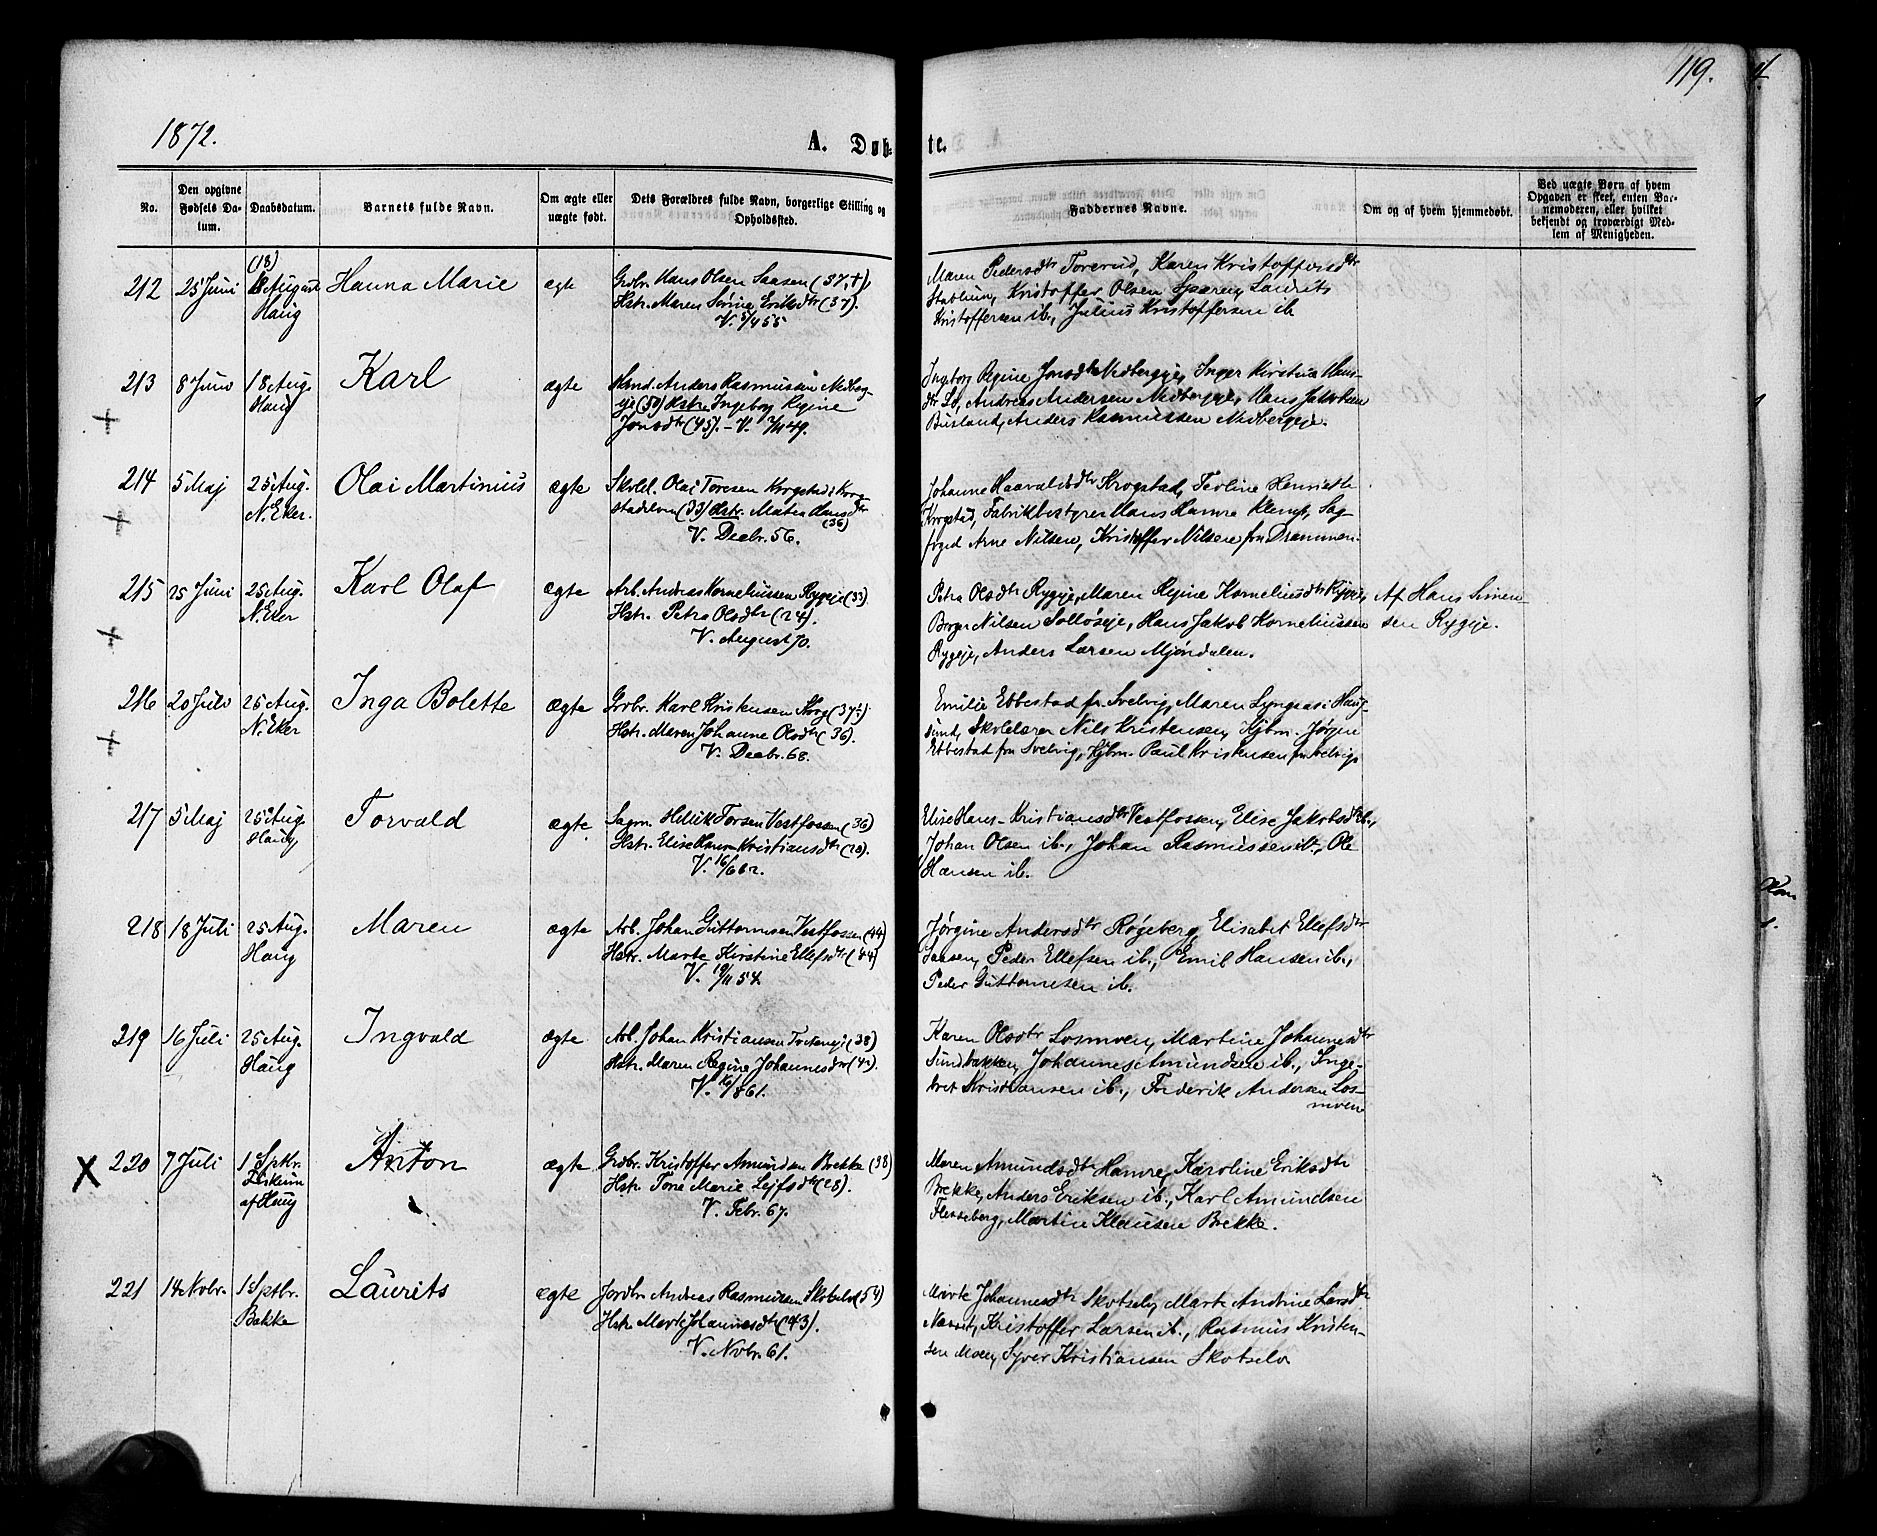 1872.
A. Døb-
te.
119.
No.
Den opgivne Fødsels Datum.
Daabsdatum.
Barnets fulde Navn.
Om ægte eller uægte født.
Dets Forældres fulde Navn, borgerlige Stilling og Opholdssted.
Faddernes Navne.
Om og af hvem hjemmedøbt.
Ved uægte Børn af hvem
Opgaven er skeet, enten Bar-
nemoderen, eller hvilket
bekjendt og troværdigt Med-
lem af Menigheden.
212 25 Juni (18) August Haug Hanna Marie ægte
Grdbr. Hans Olsen Saasen (37,
Hstr. Maren Sørine Eriksdtr (37).
V. 5/4 55
Maren Pedersdtr Torerud, Karen Kristoffersdtr
Kristoffer Olsen Laurits
Kristoffersen ib., Julius Kristoffersen ib
213 8 Juni 18 Aug. Haug Karl ægte
Anders Rasmussen Nedberg-
eje (50) Hstr. Ingeborg Regine
Jonsdtr (45). - V. 49.
Ingeborg Regine Jonsdtr Nedbergeje, Inger Kirstine Han-
dtr Lo, Andreas Andersen Nedbergeje, Hans Jakobsen
Busland, Anders Rasmussen Nedbergeje.
214 5 Maj 25 Aug. N. Eker. Olai Martinius ægte
Olai Toresen Krogstad i Krog-
stadelven (33) Hstr. Matea Hansdtr
(36)
V. Decbr. 56.
Johanne Haavaldsdtr Krogstad, Teoline Henriette
Krogstad, Fabrikbestyrer Hans Hamre Klemp, Sag-
foged Arne Nilsen, Kristoffer Nilsen fra Drammen.
215 25 Juni 25 Aug. N. Eker Karl Olaf ægte
Arb. Andreas Korneliussen Rygeje (33)
Hstr. Petra Olsdtr (24).
V. August 70.
Petra Olsdtr Rygeje, Maren Regine Korneliusdtr Rygeje,
Borger Nilsen Solløseje, Hans Jakob Korneliussen
Rygeje, Anders Larsen Mjøndalen.
Af Hans Simen-
sen Rygeje.
216 20 Juli 25 Aug. N. Eker Inga Bolette ægte
Grbr. Karl Kristensen (37½)
Hstr. Maren Johanne Olsdtr (36).
V. Decbr. 68.
Emilie Ebbestad fr. Svelvig, Maren Lyngaas i Haug-
sund, Skolelærer Nils Kristensen, Kjbm. Jørgen
Ebbestad fra Svelvig, Kjbm. Paul Kristensen fra Svelvig.
217 5 Maj 25 Aug. Haug Torvald ægte
Sagm. Helik Torsen Vestfossen (36)
Hstr. Elise Hans-Kristiansdtr
V. 16/6 62.
Elise Hans-Kristiansdtr Vestfossen, Elise Jakobsdtr ib.,
Johan Olsen ib., Johan Rasmussen ib., Ole
Hansen ib.
218 18 Juli 25 Aug. Haug Maren ægte
Arb. Johan Guttormsen Vestfossen (44)
Hstr. Marte Kirstine Ellefsdtr (44)
V. 19/11 54.
Jørgine Andersdtr Røgeberg, Elisabet Ellefsdtr
Saasen, Peder Ellefsen ib., Emil Hansen ib.,
Peder Guttormsen ib.
219 16 Juli 25 Aug. Haug Ingvald ægte
Arb. Johan Kristiansen (38)
Hstr. Maren Regine Johannesdtr
V. 61.
Karen Olsdtr Losmoen, Martine Johannesdtr
Sundbakken, Johannes Amundsen ib., Inge-
bret Kristiansen ib., Frederik Andersen Los-
moen
220 7 Juli 1 Sptbr. Fiskum af Haug Anton ægte
Grdbr. Kristoffer Amundsen Brekke (38)
Hstr. Tone Marie Lejfsdtr (28).
V. Febr. 67.
Maren Amundsdtr Hamre, Karoline Eriksdtr
Brekke, Anders Eriksen ib., Karl Amundsen
Flesseberg, Martin Klausen Brekke.
221 14 Novbr. 1 Sptbr. Bakke Laurits ægte
Jordbr. Andreas Rasmussen Skotselv (54)
Hstr. Marte Johannesdtr (43).
V. Novbr. 61.
Marte Johannesdtr Skotselv, Marte Andrine Larsdtr
Næset, Kristoffer Larsen ib., Rasmus Kristen-
sen Moen, Syver Kristiansen Skotselv